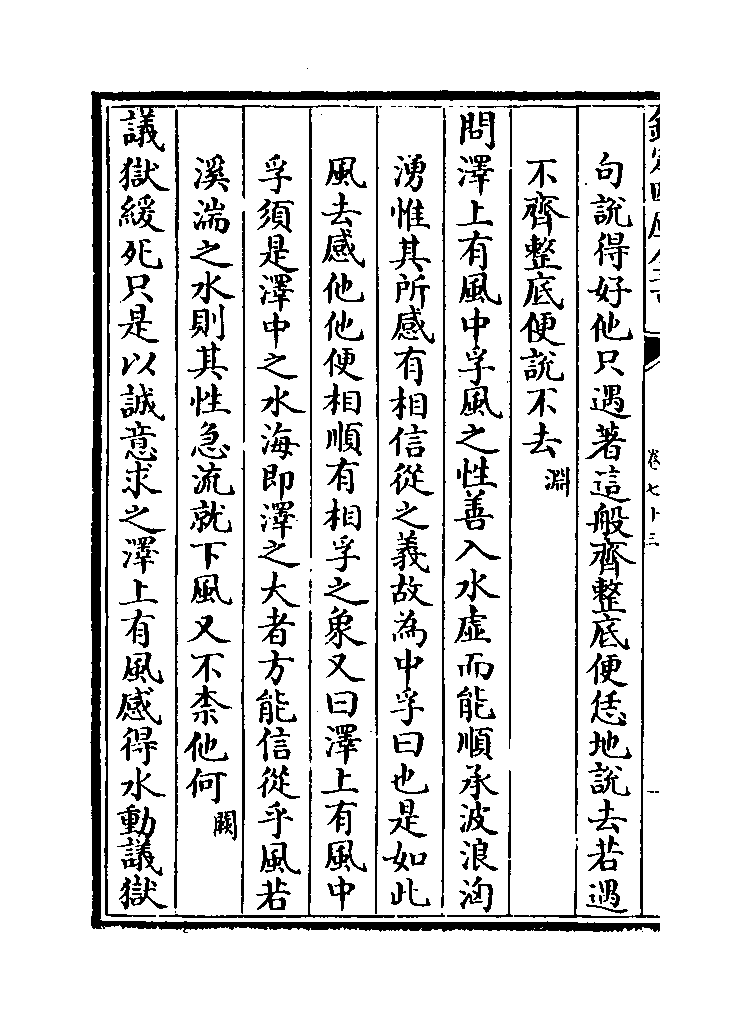 卷七十三
句説得好他只遇著這般齊整底便恁地説去若遇
不齊整底便説不去淵
問澤上有風中孚風之性善入水虚而能順承波浪洶
湧惟其所感有相信從之義故為中孚曰也是如此
風去感他他便相順有相孚之象又曰澤上有風中
孚須是澤中之水海即澤之大者方能信從乎風若
溪湍之水則其性急流就下風又不柰他何闕
議獄緩死只是以誠意求之澤上有風感得水動議獄